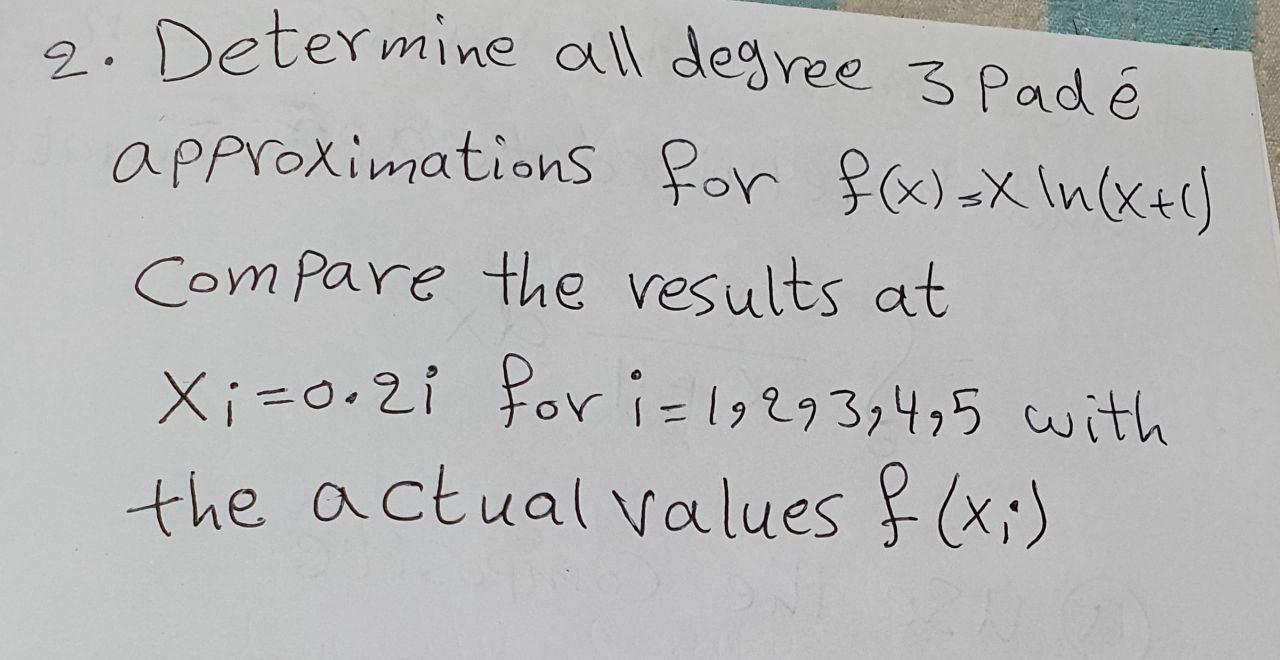 2. Determine all degree 3 Padé
approximations for f(x)=x ln(x+1)
Compare the results at
xi=0.2i for i=1,2,3,4,5 with
the actual values f(xi)